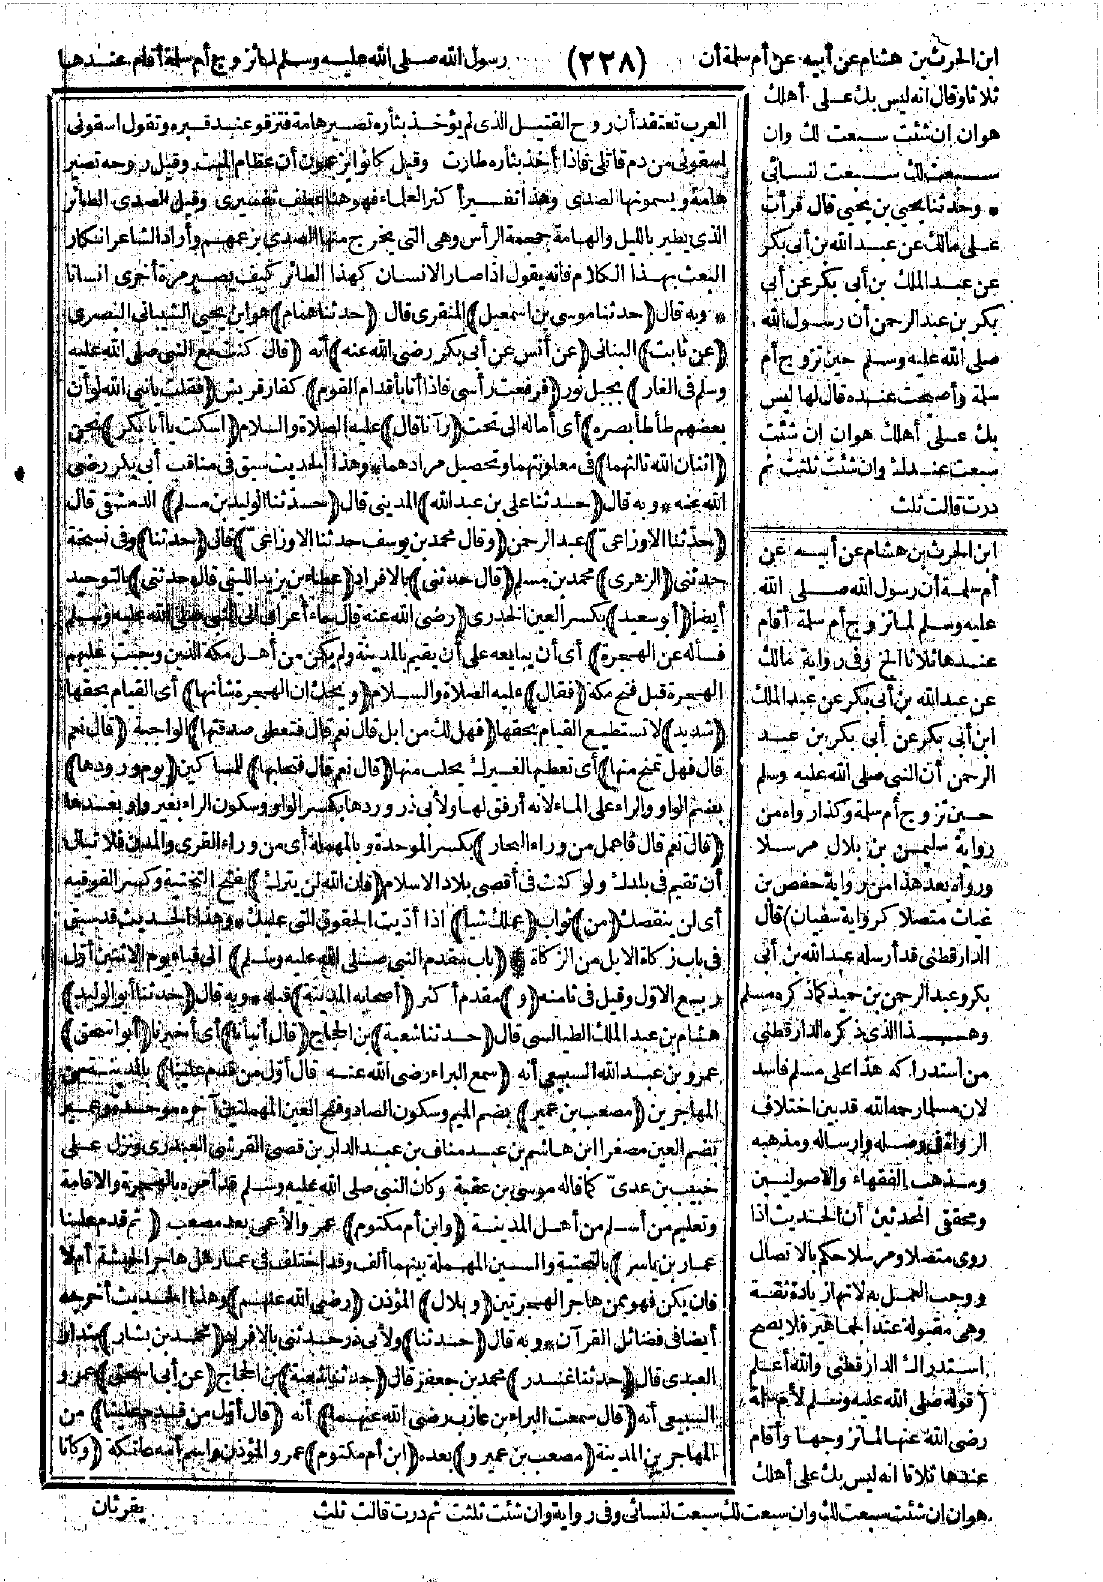 ابن الحرث بن هشام عن أبيه عن أم سلمة أن
(٢٣٨)
رسول الله صلى الله عليه وسلم لما تزوج أم سلمة أقام عندها
ثلاثا وقال انه ليس بك على أهلك
هوان ان شئت سبعت لك وان
سبعت لك سبعت لنسائى
* وحدثنا يحيى بن يحيى قال قرأت
على مالك عن عبد الله بن أبى بكر
عن عبد الملك بن أبى بكر عن أبى
بكر بن عبد الرحمن أن رسول الله
صلى الله عليه وسلم حين تزوج أم
سلمة وأصبحت عنده قال لها ليس
بك على أهلك هوان ان شئت
سبعت عندك وان شئت ثلثت ثم
درت قالت ثلث
ابن الحرث بن هشام عن أبيه عن
أم سلمة أن رسول الله صلى الله
عليه وسلم لما تزوج أم سلمة أقام
عندها ثلاثا الخ وفى رواية مالك
عن عبد الله بن أبى بكر عن عبد الملك
ابن أبى بكر عن أبى بكر بن عبد
الرحمن أن النبى صلى الله عليه وسلم
حين تزوج أم سلمة وكذا رواه من
رواية سليمن بن بلال مرسلا
ورواه بعد هذا من رواية حفص بن
غياث متصلا كرواية سفيان) قال
الدارقطنى قد أرسله عبد الله بن أبى
بكر وعبد الرحمن بن حميد كما ذكره مسلم
وهذا الذى ذكره الدارقطنى
من استدراكه هذا على مسلم فاسد
لان مسلما رحمه الله قد بين اختلاف
الرواة فى وصله وارساله ومذهبه
ومذهب الفقهاء والاصوليين
ومحققى المحدثين أن الحديث اذا
روى متصلا ومرسلا حكم بالاتصال
ووجب العمل به لانها زيادة ثقة
وهى مقبولة عند الجماهير فلا يصح
استدراك الدارقطنى والله أعلم
(قوله صلى الله عليه وسلم لأم سلمة
رضى الله عنها لما تزوجها وأقام
عندها ثلاثا انه ليس بك على أهلك
هوان ان شئت سبعت لك وان سبعت لك سبعت لنسائى وفى رواية وان شئت ثلثت ثم درت قالت ثلث
العرب تعتقد أن روح القتيل الذى لم يؤخذ بثأره تصير هامة فترقو عند قبره وتقول اسقونى
اسقونى من دم قاتلى فاذا أخذ بثأره طارت وقيل كانوا يزعمون أن عظام الميت وقيل روحه تصير
هامة ويسمونها الصدى وهذا تفسير أكثر العلماء فهو هنا عطف تفسيرى وقيل الصدى الطائر
الذى يطير بالليل والهامة جمجمة الرأس وهى التى يخرج منها الصدى بزعمهم وأراد الشاعر انكار
البعث بهذا الكلام فانه يقول اذا صار الانسان كهذا الطائر كيف يصير مرة أخرى انسانا
* وبه قال (حدثنا موسى بن اسمعيل) المنقرى قال (حدثنا همام) هو ابن يحيى الشيبانى البصرى
(عن ثابت) البنانى (عن أنس عن أبى بكر رضى الله عنه) أنه (قال كنت مع النبى صلى الله عليه
وسلم فى الغار) بجبل ثور (فرفعت رأسى فاذا أنا بأقدام القوم) كفار قريش (فقلت يا نبى الله لو أن
بعضهم طأطأ بصره) أى أماله الى تحت (رآنا قال) عليه الصلاة والسلام (اسكت يا أبا بكر) نحن
(اثنان الله ثالثهما) فى معاونتهما وتحصيل مرادهما * وهذا الحديث سبق فى مناقب أبى بكر رضى
الله عنه * وبه قال (حدثنا على بن عبد الله) المدينى قال (حدثنا الوليد بن مسلم) الدمشقى قال
(حدثنا الاوزاعى) عبد الرحمن (وقال محمد بن يوسف حدثنا الاوزاعى) قال (حدثنا) وفى نسخة
حدثنى (الزهرى) محمد بن مسلم (قال حدثنى) بالافراد (عطاء بن يزيد الليثى قال حدثنى) بالتوحيد
أيضا (أبو سعيد) بكسر العين الخدرى (رضى الله عنه قال جاء أعرابى الى النبى صلى الله عليه وسلم
فسأله عن الهجرة) أى أن يبايعه على أن يقيم بالمدينة ولم يكن من أهل مكة الذين وجبت عليهم
الهجرة قبل فتح مكة (فقال) عليه الصلاة والسلام (ويحك ان الهجرة شأنها) أى القيام بحقها
(شديد) لا تستطيع القيام بحقها (فهل لك من ابل قال نعم قال فتعطى صدقتها) الواجبة (قال نعم
قال فهل تمنح منها) أى تعطيها لغيرك يحلب منها (قال نعم قال فتحلبها) للمساكين (يوم ورودها)
بضم الواو والراء على الماء لانه أرفق لها ولأبى ذر وردها بكسر الواو وسكون الراء بغير واو بعدها
(قال نعم قال فاعمل من وراء البحار) بكسر الموحدة وبالمهملة أى من وراء القرى والمدن فلا تبال
أن تقيم فى بلدك ولو كنت فى أقصى بلاد الاسلام (فان الله لن يترك) بفتح التحتية وكسر الفوقية
أى لن ينقصك (من) ثواب (عملك شيأ) اذا أديت الحقوق التى عليك * وهذا الحديث قد سبق
فى باب زكاة الابل من الزكاة * (باب مقدم النبى صلى الله عليه وسلم) الى قباء يوم الاثنين أول
ربيع الاول وقيل فى ثامنه (و) مقدم أكثر (أصحابه المدينة) قبله * وبه قال (حدثنا أبو الوليد)
هشام بن عبد الملك الطيالسى قال (حدثنا شعبة) بن الحجاج (قال أنبأنا) أى أخبرنا (أبو اسحق)
عمرو بن عبد الله السبيعى أنه (سمع البراء رضى الله عنه قال أول من قدم علينا) بالمدينة من
المهاجرين (مصعب بن عمير) بضم الميم وسكون الصاد وفتح العين المهملتين آخره موحدة وعمير
بضم العين مصغرا ابن هاشم بن عبد مناف بن عبد الدار بن قصى القرشى العبدرى ونزل على
خبيب بن عدى كما قاله موسى بن عقبة وكان النبى صلى الله عليه وسلم قد أمره بالهجرة والاقامة
وتعليم من أسلم من أهل المدينة (وابن أم مكتوم) عمرو الأعمى بعد مصعب (ثم قدم علينا
عمار بن ياسر) بالتحتية والسين المهملة بينهما ألف وقد اختلف فى عمار هل هاجر الحبشة أم لا
فان يكن فهو ممن هاجر الهجرتين (وبلال) المؤذن (رضى الله عنهم) وهذا الحديث أخرجه
أيضا فى فضائل القرآن * وبه قال (حدثنا) ولأبى ذر حدثنى بالافراد (محمد بن بشار) بندار
العبدى قال (حدثنا غندر) محمد بن جعفر قال (حدثنا شعبة) بن الحجاج (عن أبى اسحق) عمرو
السبيعى أنه (قال سمعت البراء بن عازب رضى الله عنهما) أنه (قال أول من قدم علينا) من
المهاجرين المدينة (مصعب بن عمير و) بعده (ابن أم مكتوم) عمرو المؤذن واسم أمه عاتكة (وكانا
يقرئان